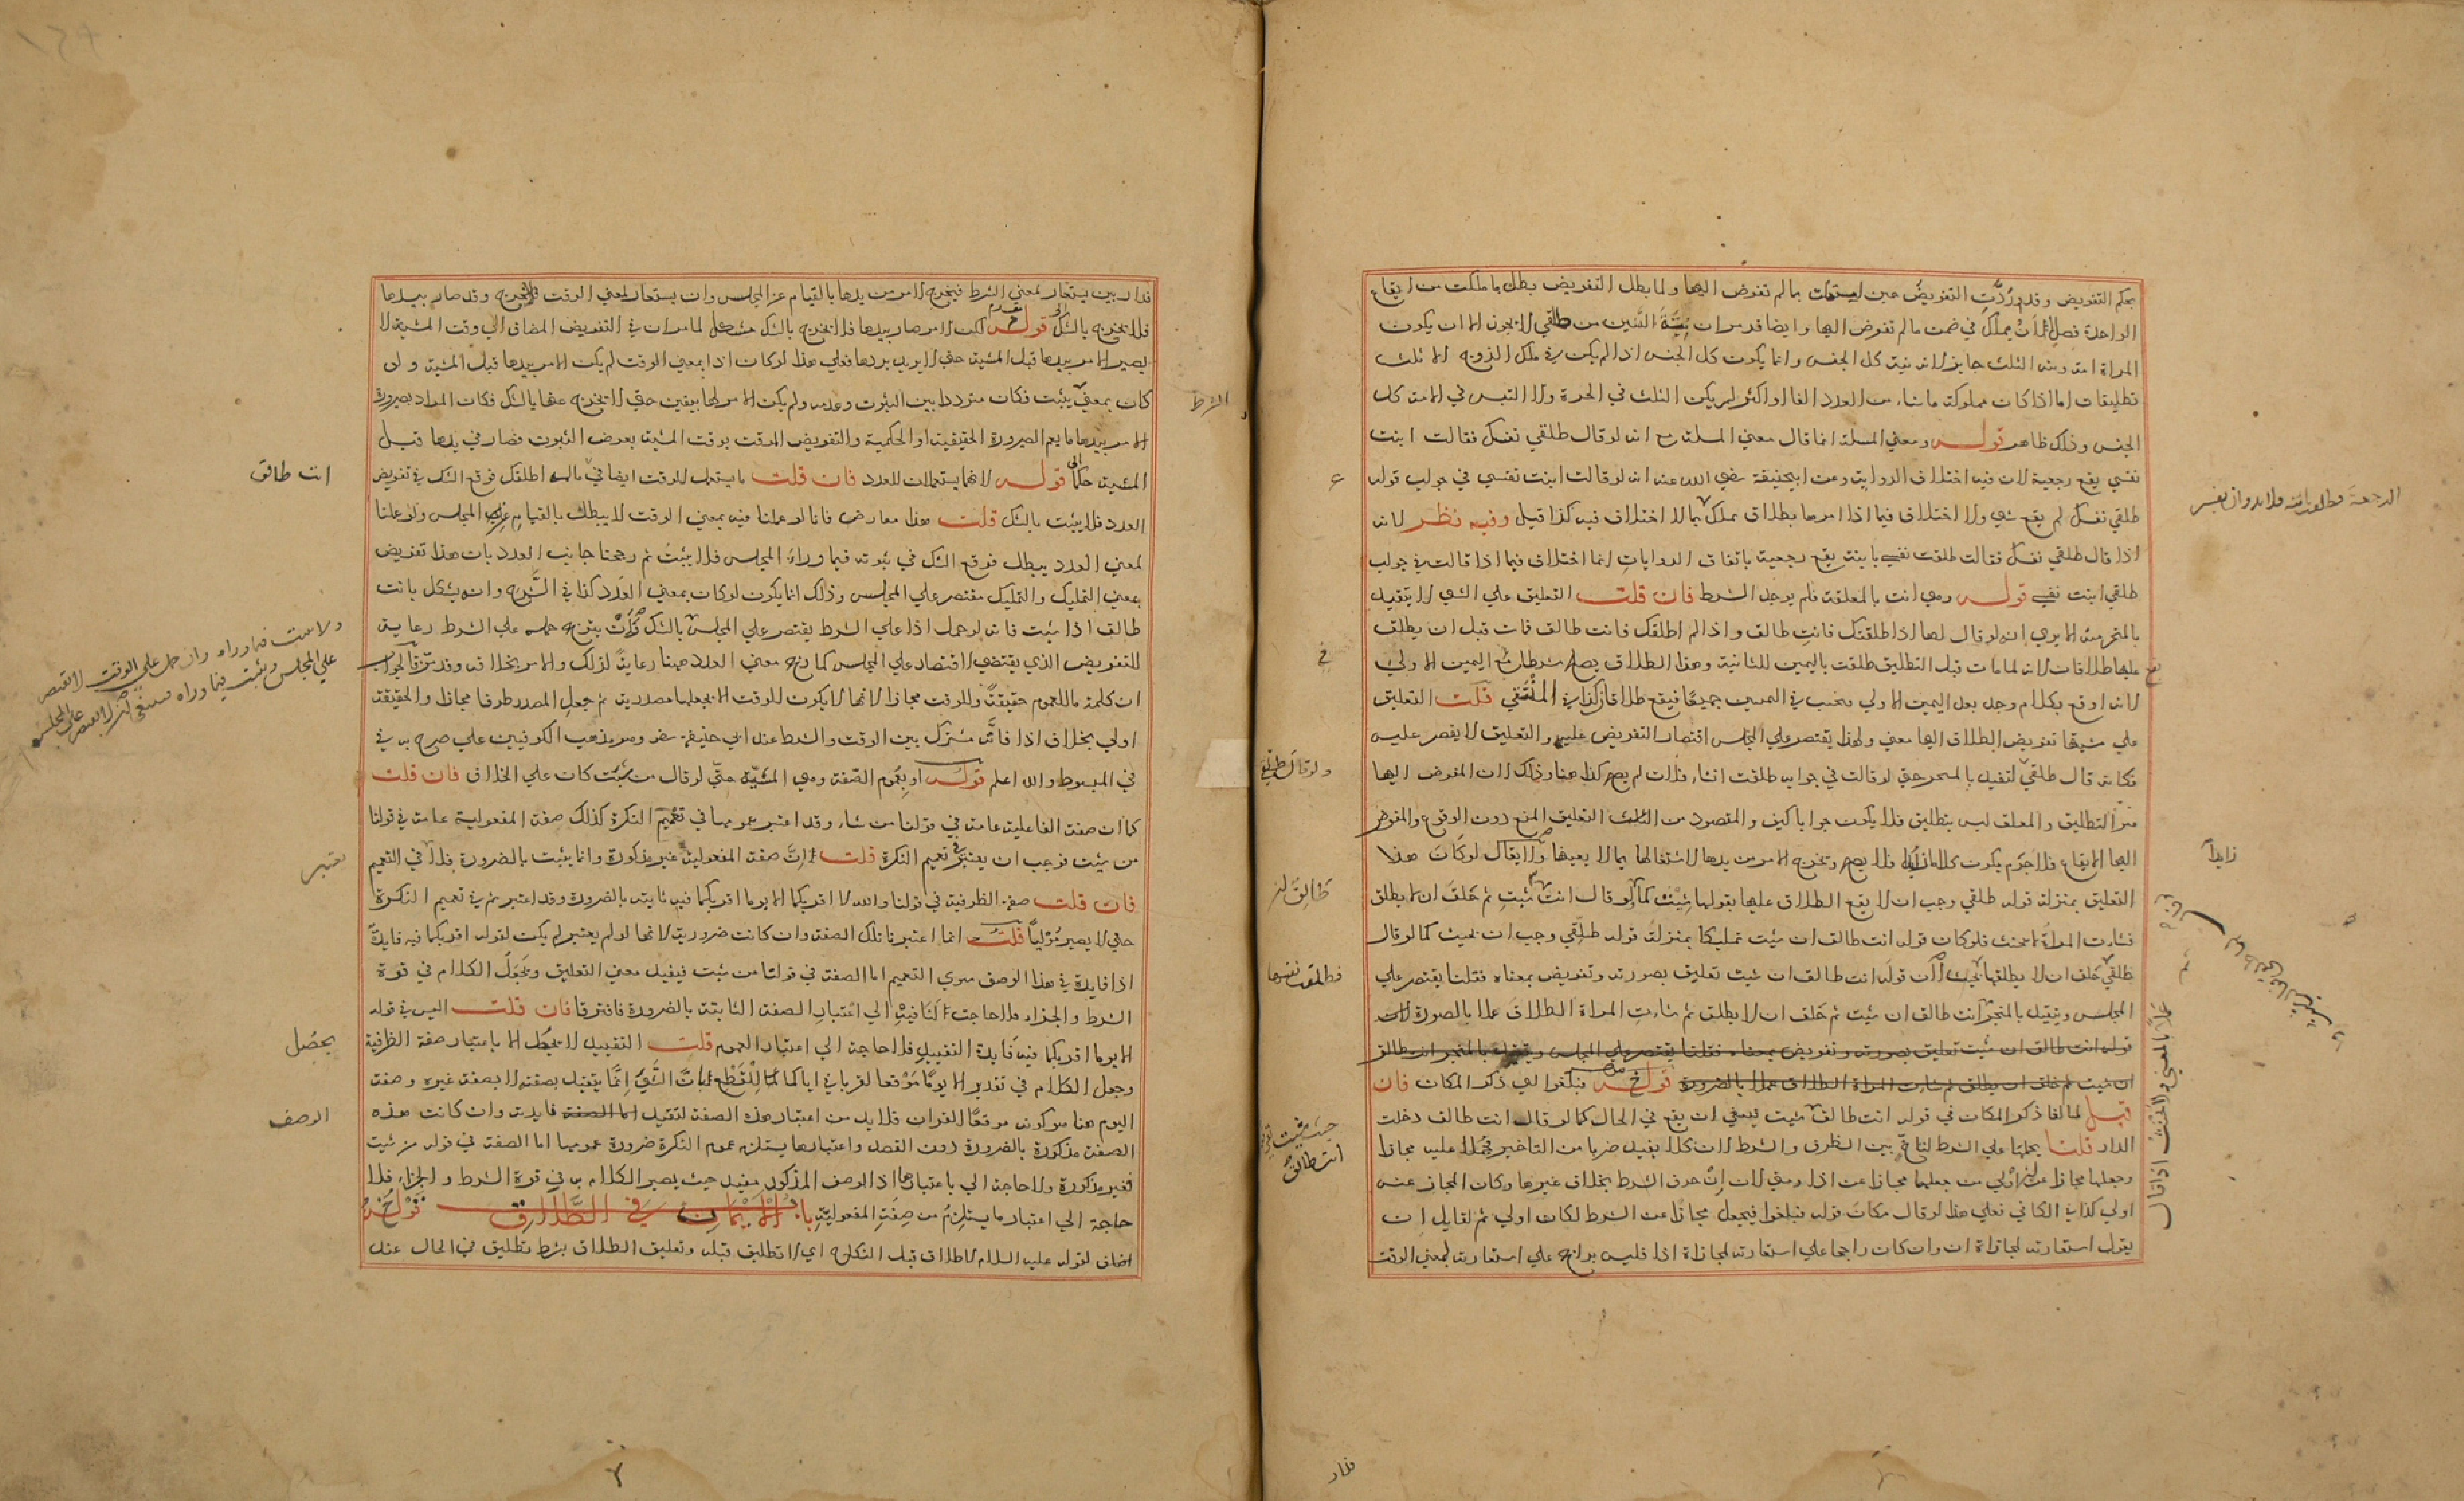 بحكم التفويض وقد ردت التفويض حين بما لم تفوض اليها ولما بطل التفويض بطل ما ملكت من ايقاع
الواحدة في ضمن ما لم تفوض اليها وايضا قد مر ان نية الثنتين من طلقي لا يجوز الا ان يكون
المراة امة ونية الثلث جايز لانه نية كل الجنس وانما يكون كل الجنس اذا لم يكن في ملك الزوج الا ثلث
تطليقات اما اذا كان مملوكه ما شاء من العدد الفا او اكثر لم يكن الثلث في الحرة ولا الثنتين في الامة كل
الجنس وذلك ظاهر قوله ومعني المسلة انما قال معني المسلة مع انه لو قال طلقي نفسك فقالت ابنت
نفسي يقع رجعية لان فيه اختلاف الرواية وعن ابي حنيفة رضي الله عنه انه لو قالت ابنت نفسي في جواب قوله
طلقي نفسك لم يقع شي ولا اختلاف فيما اذا امرها بطلاق يملك بما لا اختلاف فيه كذا قيل وفيه نظر لانه
اذا قال طلقي نفسك فقالت طلقت نفسي باينة يقع رجعية باتفاق الروايات انما اختلاف فيما اذا قالت في جواب
طلقي ابنت نفسي قوله وهي اتت بالمعلقة فلم يوجد الشرط فان قلت التعليق علي الشي لا يتقيد
بالمنجز منه الا يري انه لو قال لها اذا طلقتك فانت طالق واذا لم اطلقك فانت طالق فمات قبل ان يطلق
عليها طلاقان لانه لما مات قبل التطليق طلقت باليمين الثانية وهذا الطلاق يصلح شرطا في اليمين الاولي
لانه اوقع بكلام وجد بعد اليمين الاولي فيحنث في اليمينين جميعا فيقع طلاقان كذا في المنتقي قلت التعليق
علي مشيتها تفويض الطلاق اليها معني ولهذا يقتصر علي المجلس اقتصار التفويض عليه والتعليق لا يقصر عليه
فكانه قال طلقي لتقيد بالمنجز حتي لو قالت في جوابه طلقت ان شاء فلان لم يصح كذا هنا وذلك لان المفوض اليها
منجز التطليق والمعلق ليس بتطليق فلا يكون جوابا كيف والمقصود من التعليق المنع دون الوقوع والمفوض
اليها الايقاع فلا جرم يكون كلاما زايدا فلا يصح ويخرج الامر من يدها لاشتغالها بما لا يعنيها ولا يقال لو كان هذا
التعليق بمنزلة قوله طلقي وجب ان لا يقع الطلاق عليها بقولها شئت كما لو قال انت شئت ثم حلف ان لا يطلق
فشات المراة لا يحنث فلو كان قوله انت طالق ان شئت تمليكا بمنزلة قوله طلقي وجب ان يحنث كما لو قال
طلقي حلف ان لا يطلقها يحنث لان قوله انت طالق ان شئت تعليق بصورته وتفويض بمعناه فقلنا يقتصر علي
المجلس ويتقيد بالمنجز انت طالق ان شئت ثم حلف ان لا يطلق ثم شات المراة الطلاق عملا بالصورة لان
قوله انت طالق ان شئت تعليق بصورته وتفويض بمعناه فقلنا يقتصر علي المجلس ويتقيد بالمنجز انت طالق
ان شئت ثم حلف ان يطلق ثم شات المراة الطلاق عملا بالصورة قوله فيلغوا ذكر المكان فان
قيل لما لغا ذكر المكان في قوله انت طالق شئت فينبغي ان يقع في الحال كما لو قال انت طالق دخلت
الدار قلنا يحملها علي الشرط بين الظرف والشرط لان كلا يفيد ضربا من التاخير فحمل عليه مجازا
وجعلها مجازا عن ان اولي من جعلها مجازا عن اذا ومتي لان ان حرف الشرط بخلاف غيرها وكان المجاز عنه
اولي كذا في الكافي فعلي هذا لو قال مكان قوله فيلغوا فيجعل مجازا عن الشرط لكان اولي ثم لقايل ان
يقول استعارته لمجازاة ان وان كان راجعا علي استعارته لمجازاة اذا فليس براجح علي استعارته لمعني الوقت
الرجعة
زايدا
في
ولو قال طلقي
طالق ان
فطلقت نفسها
حيث شئت
انت طالق
فدار
فدار بين يستعار بمعني الشرط فيخرج الامر من يدها بالقيام عن المجلس وان يستعار لمعني الوقت فلا يخرج وقد صار بيدها
فلا يخرج بالشك قوله لكن الامر صار بيدها فلا يخرج بالشك مشكل لما مر ان في التفويض المضاف الي وقت المشية لا
يصير الامر بيدها قبل المشية حتي لا يرتد بردها فعلي هذا لو كان اذا بمعني الوقت لم يكن الامر بيدها قبل المشية ولو
كان بمعني يثبت فكان مترددا بين الثبوت وعدمه ولم يكن الامر لها بيقين حتي لا يخرج عنها بالشك فكان المراد بصيرورة
الامر بيدها ما يعم الصيرورة الحقيقية او الحكمية والتفويض الموقت بوقت المشية بعرض الثبوت فصار في يدها قبل
المشية حكما قوله لانهما يستعملان للعدد فان قلت ما يستعمل للوقت ايضا في ما لم اطلقك فوقع الشك في تفويض
العدد فلا يثبت بالشك قلت هذا معارض فانا لو عملنا فيه بمعني الوقت لا يبطل بالقيام عن المجلس ولو عملنا
لمعني العدد يبطل فوقع الشك في ثبوته فيما وراء المجلس فلا يثبت ثم رجحنا جانب العدد بان هذا تفويض
بمعني التمليك والتمليك مقتصر علي المجلس وذلك انما يكون لو كان بمعني العدد كذا في الشروح وانه يشكل بانت
طالق اذا شئت فانه لو حمل اذا علي الشرط يقتصر علي المجلس بالشك وان يترجح حمله علي الشرط رعاية
للتفويض الذي يقتضي الاقتصار علي المجلس كما رجح معني العدد ههنا رعاية لذلك والامر بخلافه وقد فرق الجواب
ان كلمة ما للعموم حقيقة وللوقت مجازا لانها لا يكون للوقت الا بجعلها مصدرية ثم جعل المصدر ظرفا مجازا والحقيقة
اولي بخلاف اذا فانه مشترك بين الوقت والشرط عند ابي حنيفة وهو مذهب الكوفيين علي ما صرح به في
في المبسوط والله اعلم قوله او بعموم الصفة وهي المشية حتي لو قال من شئت كان علي الخلاف فان قلت
كما ان صفة الفاعلية عامة في قولنا من شاء وقد اعتبر عمومها في تعميم النكرة كذلك صفة المفعولية عامة في قولنا
من شئت فوجب ان يعتبر في تعميم النكرة قلت ان صفة المفعولية غير مذكورة وانما يثبت بالضرورة فلا في التعميم
فان قلت صفة الظرفية في قولنا والله لا اقربكما الا يوما اقربكما فيه ثابتة بالضرورة وقد اعتبر ثم في تعميم النكرة
حتي لا يصير موليا قلت انما اعتبرنا تلك الصفة وان كانت ضرورية لانها لو لم يعتبر لم يكن لقوله اقربكما فيه فايدة
اذا فايدة في هذا الوصف سوي التعميم اما الصفة في قولنا من شئت فيفيد معني التعليق ويجعل الكلام في قوة
الشرط والجزاء فلا حاجة الي اعتبار الصفة الثابتة بالضرورة فافترقا فان قلت اليس في قوله
الا يوما اقربكما فيه فايدة التقييد فلا حاجة الي اعتبار العموم قلت التقييد لا يحصل الا باعتبار صفة الظرفية
وجعل الكلام في تقدير الا يوما موقعا لقرباني اياكما للقطع بان الشي انما يتقيد بصفته لا بصفة غيره وصفة
اليوم هنا هو كونه موقعا للقربان فلا بد من اعتبار هذه الصفة لتقيد اما الصفة فايدته وان كانت هذه
الصفة مذكورة بالضرورة دون القصد واعتبارها يستلزم عموم النكرة ضرورة عمومها اما الصفة في قوله من شئت
فغير مذكورة ولا حاجة الي باعتبارها اذ الوصف المذكور مفيد حيث يصير الكلام به في قوة الشرط والجزاء فلا
حاجة الي اعتبار ما يستلزم من صفة المفعولية باب الايمان في الطلاق قوله
اضاف لقوله عليه السلام لا طلاق قبل النكاح اي لا تطليق قبله وتعليق الطلاق بشرط تطليق في الحال عند
الشرط
انت طالق
يعتبر
يحصل
الوصف